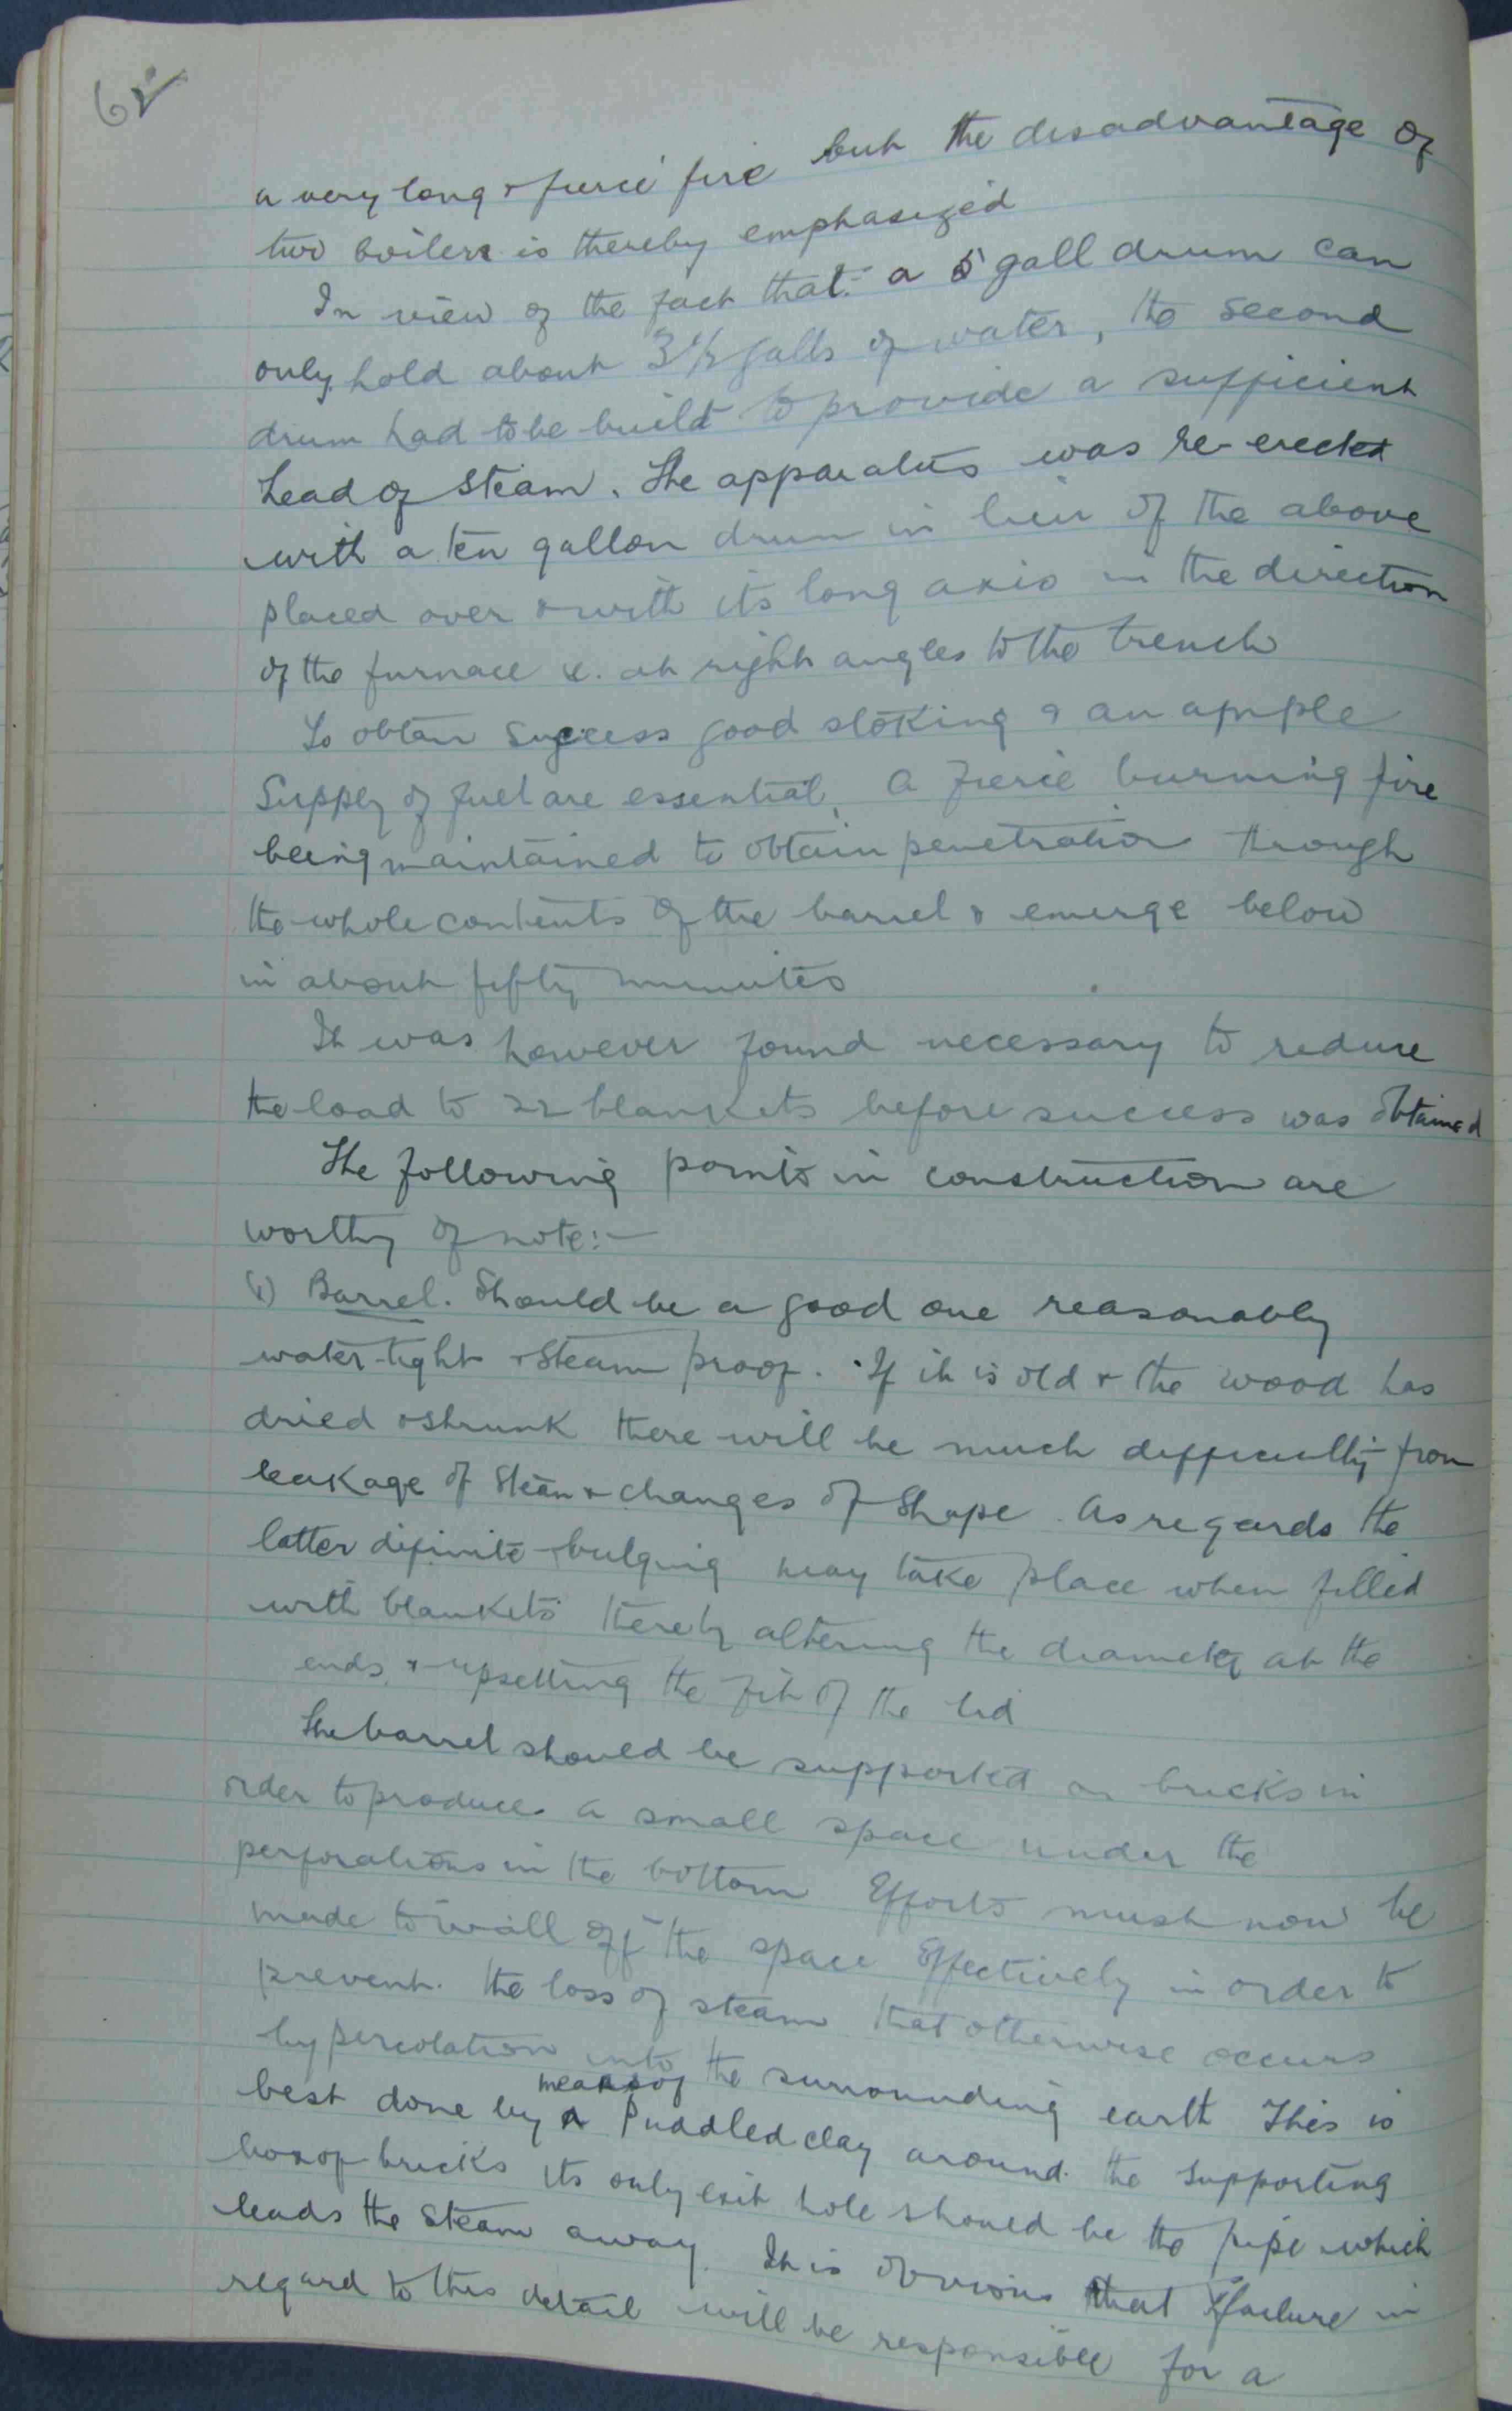 62
a very long & fierce fire but the disadvantage of
two boilers is thereby emphasized
In view of the fact that a 5 gall drum can
only hold about 3½ galls of water, the second
drum had to be built to provide a sufficient
head of steam. The apparatus was re-erected
with a ten gallon drum in lieu of the above
placed over & with its long axis in the direction
of the furnace ie. at right angles to the trench
To obtain success good stoking & an ample
supply of fuel are essential, a fierce burning fire
being maintained to obtain penetration through
the whole contents of the barrel & emerge below
in about fifty minutes
It was however found necessary to reduce
the load to 22 blankets before success was obtained
The following points in construction are
worthy of note:-
(1) Barrel. Should be a good one reasonably
water-tight & steam proof. If it is old & the wood has
dried & shrunk there will be much difficulty from
leakage of steam & changes of shape. As regards the
latter definite bulging may take place when filled
with blankets thereby altering the diameter at the
ends & upsetting the fit of the lid
The barrel should be supported on bricks in
order to produce a small space under the
perforations in the bottom Efforts must now be
made to wall off the space effectively in order to
prevent the loss of steam that otherwise occurs
by percolation into the surrounding earth This is
best done by means of Puddled clay around the supporting
box of bricks its only exit hole should be the pipe which
leads the steam away. It is obvious that failure in
regard to this detail will be responsible for a